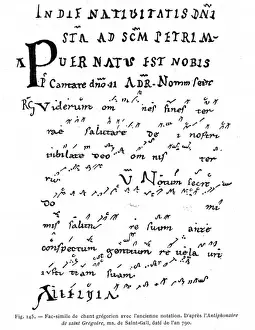 IN DIE NATIVITATIS DNI
STA AD SCM PETRUM
A PUER NATUS EST NOBIS
Ps Cantate dno. II ADR. Notum fecit
RG Viderunt om nes fines ter
rae salutare de i nostri
iubilate deo om nis ter
ra V Notum fecit
do mi
nus salu re suum ante
conspectum gentium re uela uit
iusti tiam suam
ALLELUIA
Fig. 143. — Fac-similé de chant grégorien avec l'ancienne notation. D'après l'Antiphonaire
de saint Grégoire, ms. de Saint-Gall, daté de l'an 790.